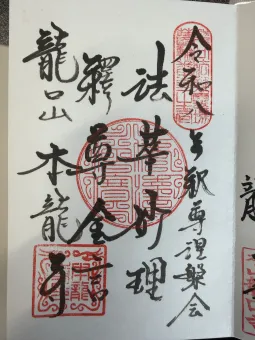 令和八年釈尊涅槃会
法華妙理
釋尊金言
龍口山本龍寺